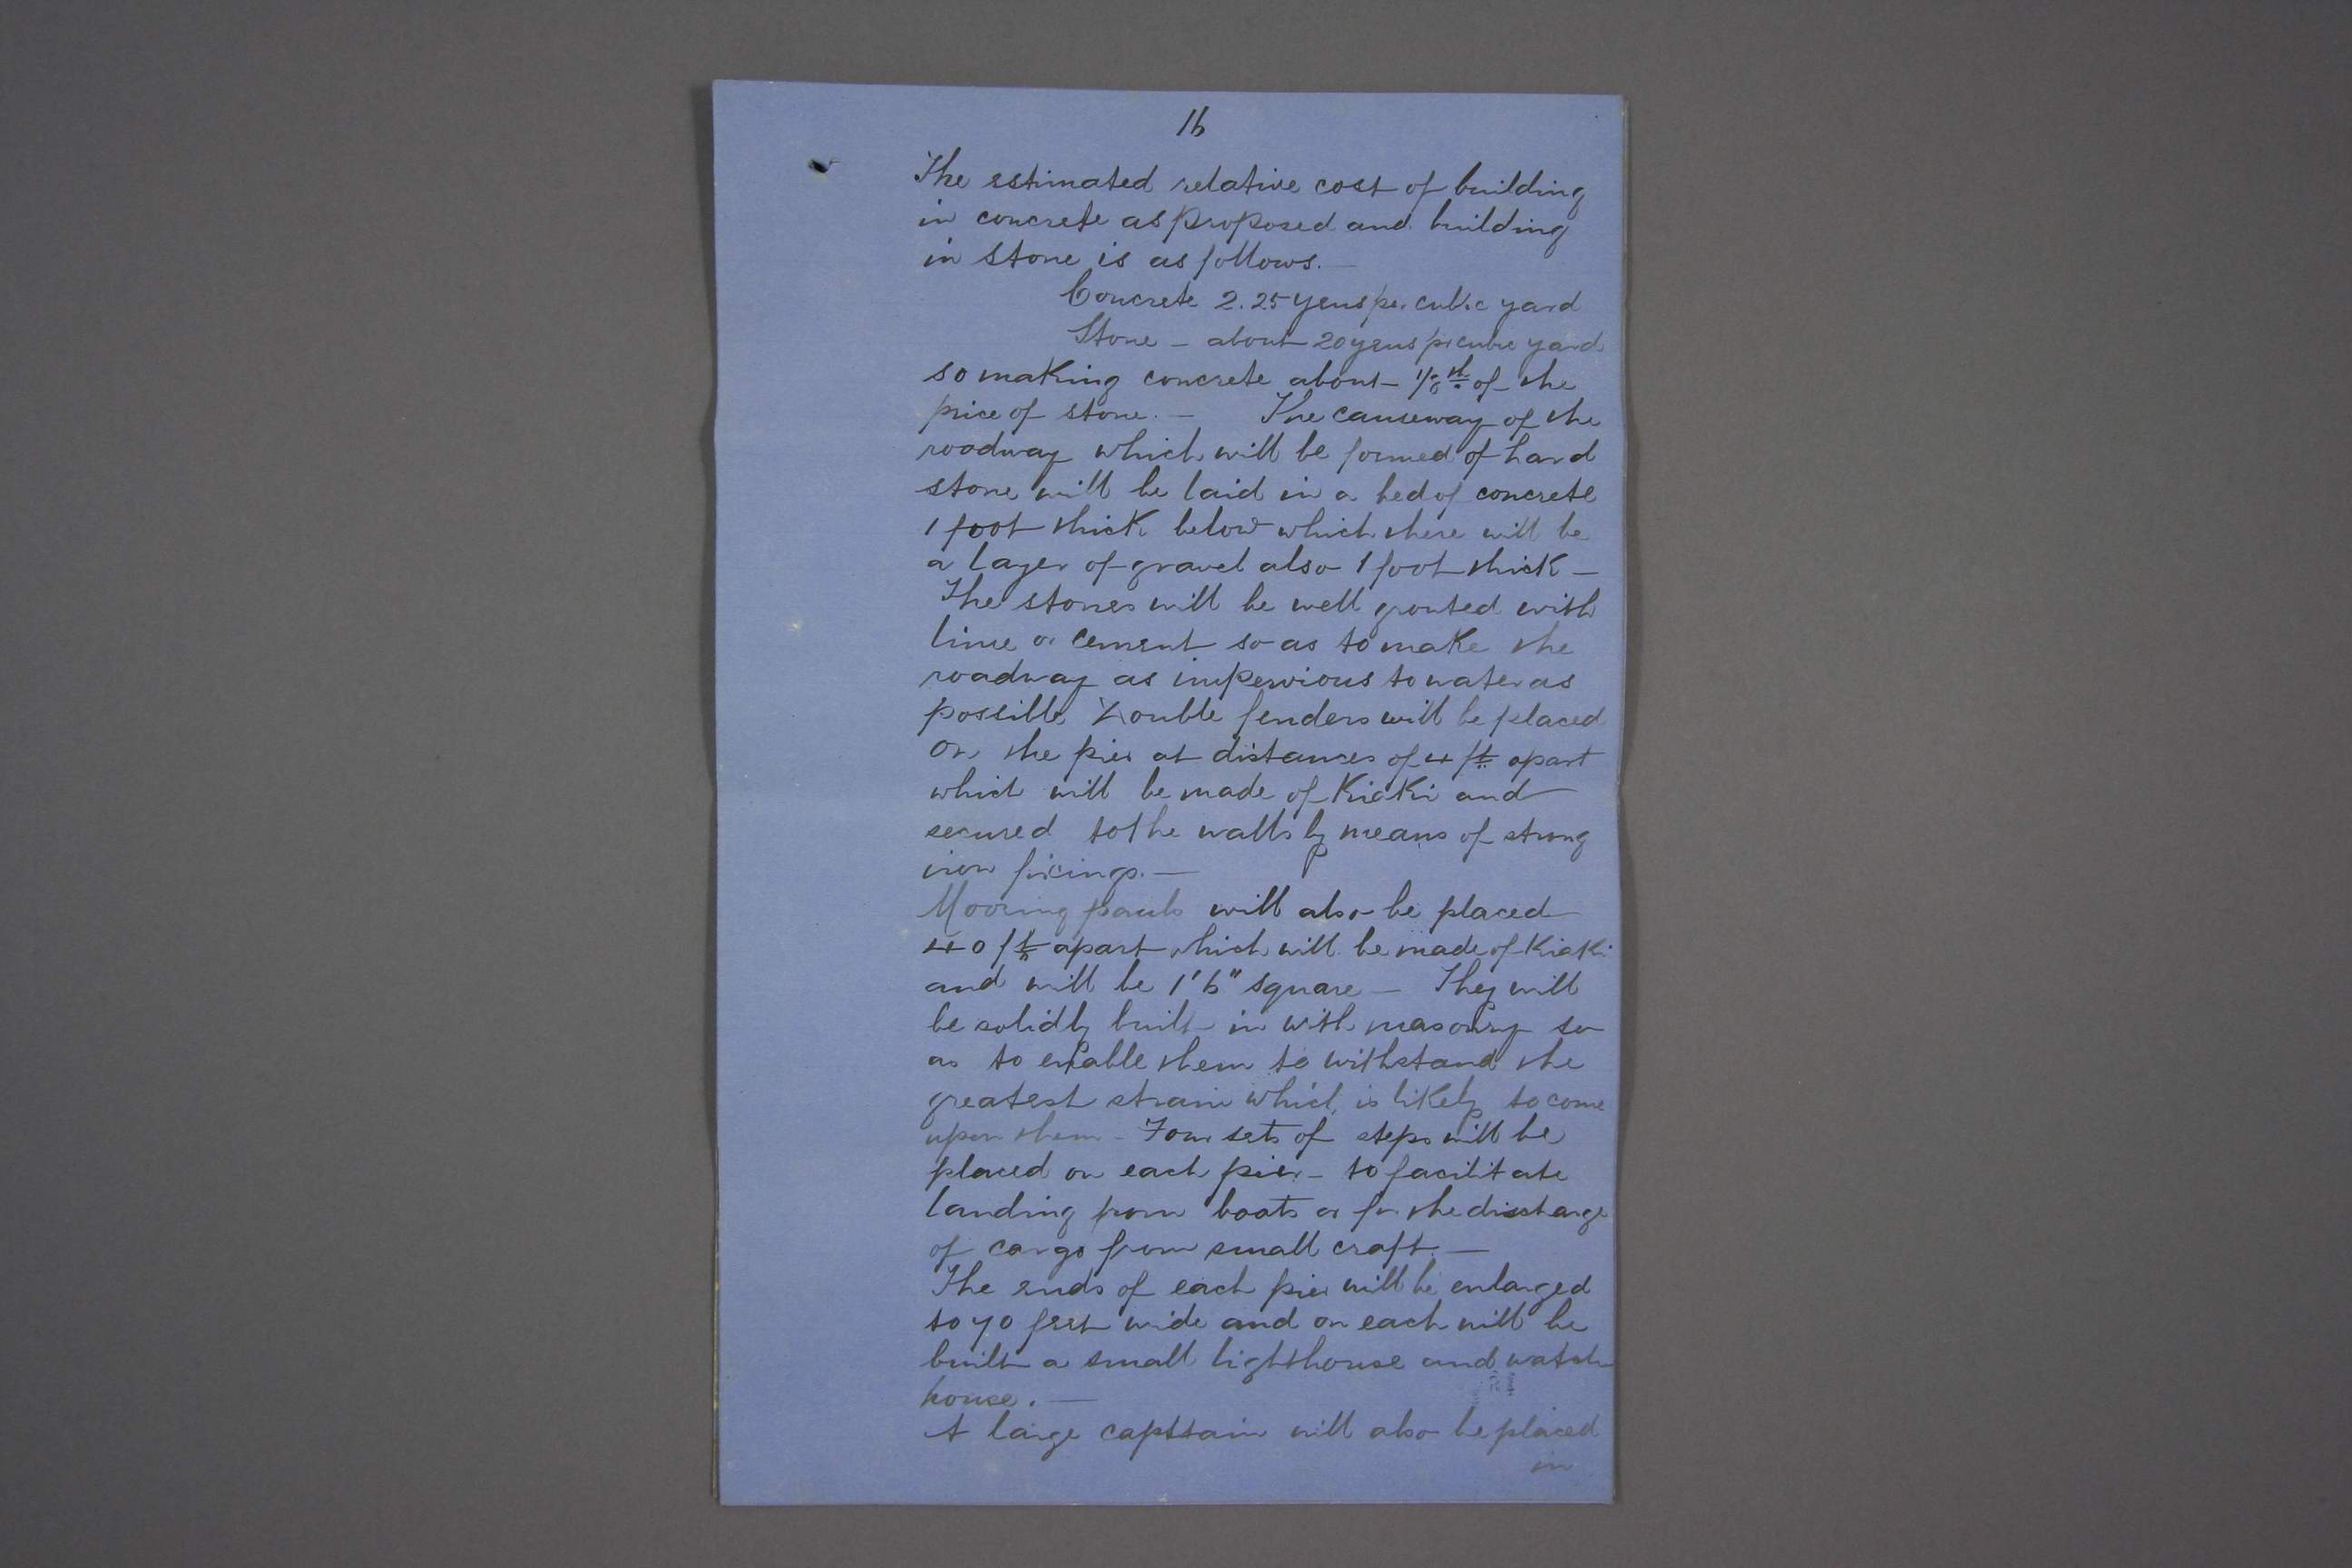 16
The estimated relative cost of building
in concrete as proposed and building
in stone is as follows.—
Concrete 2.25 yens per cubic yard
Stone — about 20 yens pr cubic yard
so making concrete about 1/8th of the
price of stone. — The causeway of the
roadway which will be formed of hard
stone will be laid in a bed of concrete
1 foot thick below which there will be
a layer of gravel also 1 foot thick —
The stones will be well grouted with
lime or cement so as to make the
roadway as impervious to water as
possible Double fenders will be placed
on the pier at distances of 4 ft apart
which will be made of Kiaki and
secured to the walls by means of strong
iron fixings.—
Mooring pauls will also be placed
40 ft apart which will be made of Kiaki
and will be 1'6" square — They will
be solidly built in with masonry so
as to enable them to withstand the
greatest strain which is likely to come
upon them — Four sets of steps will be
placed on each pier — to facilitate
landing from boats or for the discharge
of cargo from small craft.—
The ends of each pier will be enlarged
to 70 feet wide and on each will be
built a small lighthouse and watch
house.—
A large capstain will also be placed
in